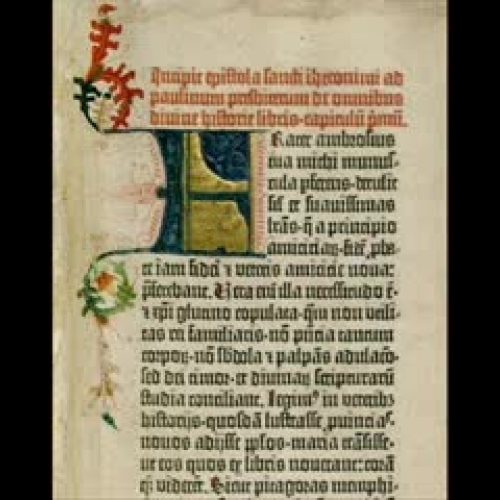 Incipit epistola sancti iheronimi ad
paulinum presbiterum de omnibus
divine historie libris·capitulū pmū.
Frater ambrosius
tua michi munus-
cula pferens·detulit
sil' et suavissimas
lrās·q̄ a principio
amiciciaꝝ·fidē pba-
te iam fidei ⁊ veteris amicicie nova:
pferebant. Vera enī illa necessitudo ē·
⁊ xpi glutino copulata·qm non utili-
tas rei familiaris·nō pñcia tantum
corpoꝝ·nō sbdola ⁊ palpās adulacō·
sed dei timor·et divinaꝝ scripturarū
studia conciliant. Legim⁹ in veteribꝫ
historijs·quosdā lustrasse puincias·
novos adijsse pplos·maria trāsisse·
ut eos quos ex libris noverant: corā
qꝫ viderēt. Sicut pitagoras memphi-